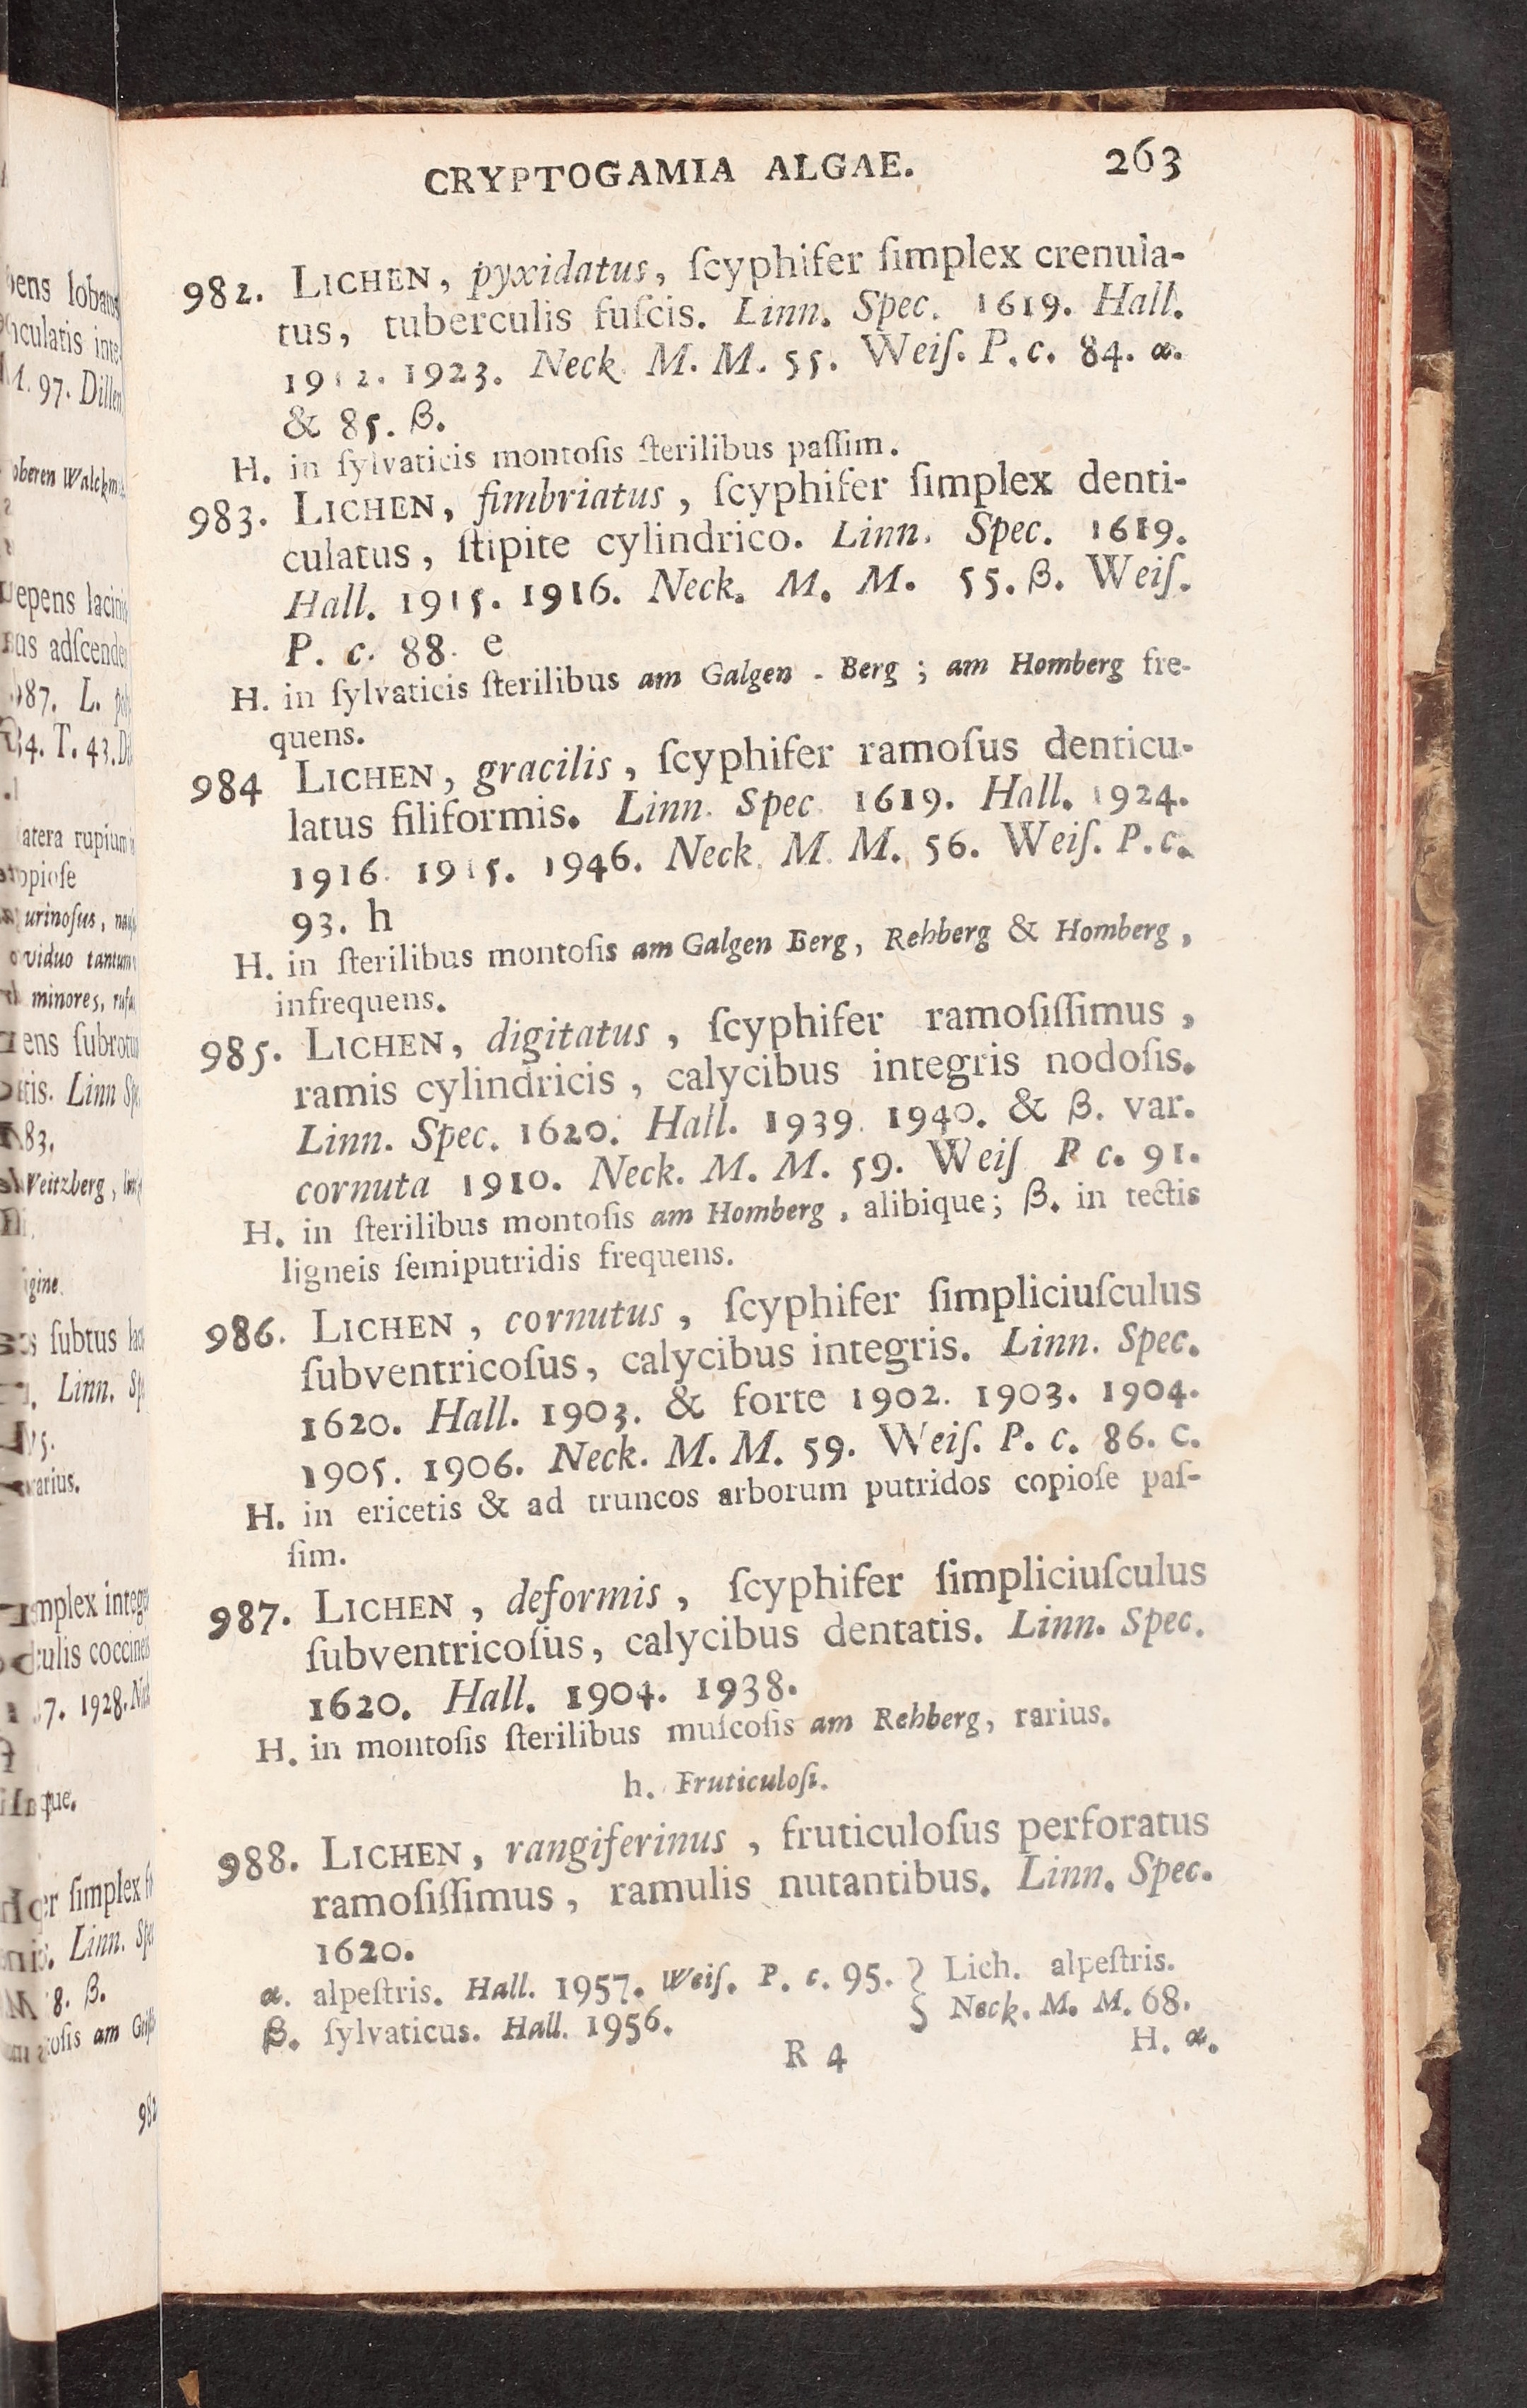 CRYPTOGAMIA ALGAE. 263
982. LICHEN, pyxidatus, ſcyphifer ſimplex crenula-
tus, tuberculis fuſcis. Linn. Spec. 1619. Hall.
1912. 1923. Neck. M. M. 55. Weiſ. P. c. 84. α.
& 85. β.
H. in ſylvaticis montoſis ſterilibus paſſim.
983. LICHEN, fimbriatus, ſcyphifer ſimplex denti-
culatus, ſtipite cylindrico. Linn. Spec. 1619.
Hall. 1915. 1916. Neck. M. M. 55. β. Weiſ.
P. c. 88. e
H. in ſylvaticis ſterilibus am Galgen - Berg; am Homberg fre-
quens.
984 LICHEN, gracilis, ſcyphifer ramoſus denticu-
latus filiformis. Linn. Spec. 1619. Hall. 1924.
1916. 1915. 1946. Neck. M. M. 56. Weiſ. P. c.
93. h
H. in ſterilibus montoſis am Galgen Berg, Rehberg & Homberg,
infrequens.
985. LICHEN, digitatus, ſcyphifer ramoſiſſimus,
ramis cylindricis, calycibus integris nodoſis.
Linn. Spec. 1620. Hall. 1939. 1940. & β. var.
cornuta 1910. Neck. M. M. 59. Weiſ P c. 91.
H. in ſterilibus montoſis am Homberg, alibique; β. in tectis
ligneis ſemiputridis frequens.
986. LICHEN, cornutus, ſcyphifer ſimpliciuſculus
ſubventricoſus, calycibus integris. Linn. Spec.
1620. Hall. 1903. & forte 1902. 1903. 1904.
1905. 1906. Neck. M. M. 59. Weiſ. P. c. 86. c.
H. in ericetis & ad truncos arborum putridos copioſe paſ-
ſim.
987. LICHEN, deformis, ſcyphifer ſimpliciuſculus
ſubventricoſus, calycibus dentatis. Linn. Spec.
1620. Hall. 1904. 1938.
H. in montoſis ſterilibus muſcoſis am Rehberg, rarius.
h. Fruticuloſi.
988. LICHEN, rangiferinus, fruticuloſus perforatus
ramoſiſſimus, ramulis nutantibus. Linn. Spec.
1620.
α. alpeſtris. Hall. 1957. Weiſ. P. c. 95. } Lich. alpeſtris.
β. ſylvaticus. Hall. 1956. } Neck. M. M. 68.
R 4 H. α.